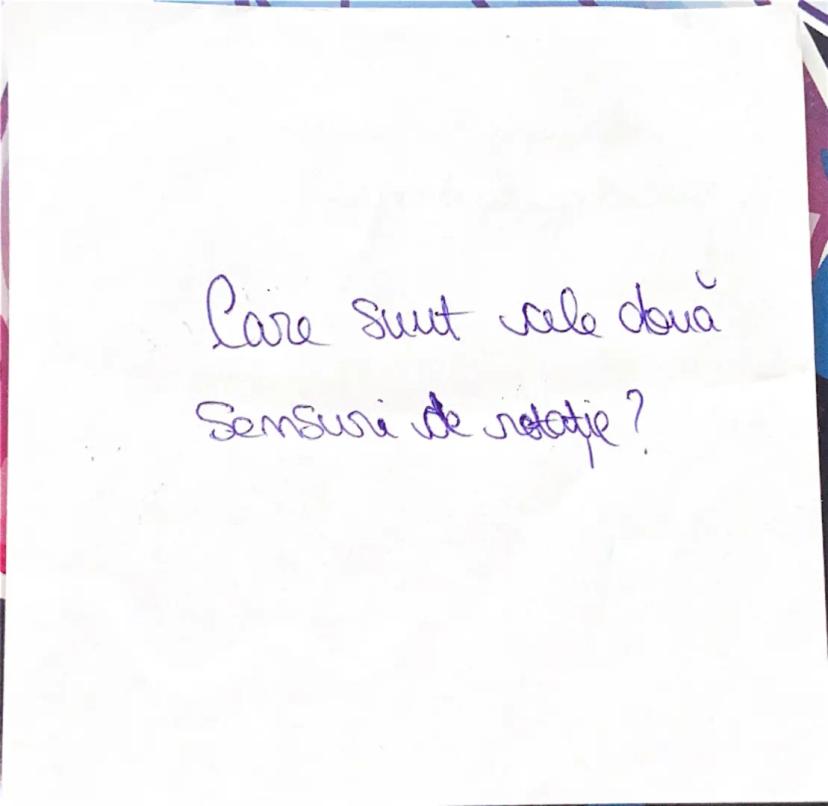 Care sunt cele două
sensuri de rotație?